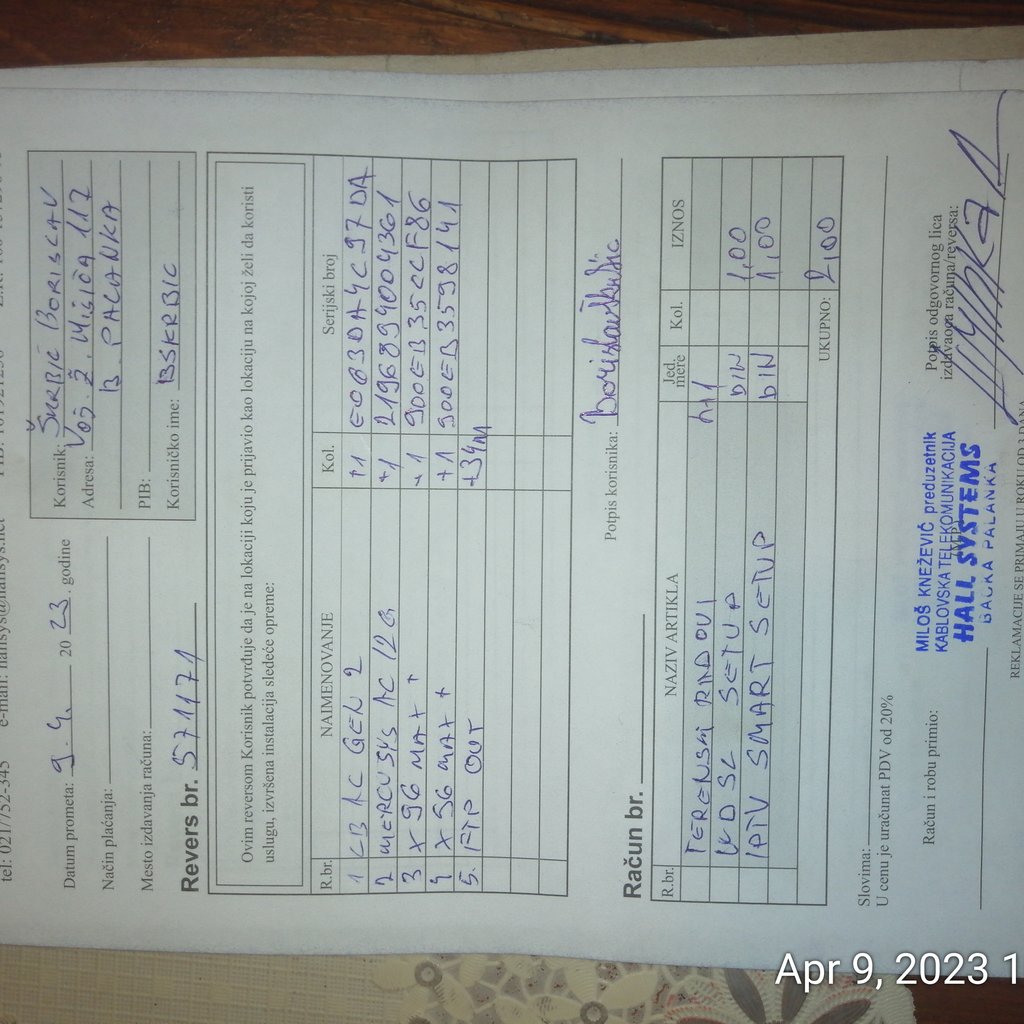 tel: 021/752-345 e-mail: hallsys@hallsys.net
Datum prometa: 9. 4. 20 23. godine
Način plaćanja:
Mesto izdavanja računa:
Korisnik: Škrbić Borislav
Adresa: Voj. Ž. Mišića 117
B. PALANKA
PIB:
Korisničko ime: BSKRBIC
Revers br. 571171
Ovim reversom Korisnik potvrđuje da je na lokaciji koju je prijavio kao lokaciju na kojoj želi da koristi
uslugu, izvršena instalacija sledeće opreme:
R.br. NAIMENOVANJE Kol. Serijski broj
1 LB AC GEN 2 +1 E063DA4C97DA
2 MERCUSYS AC 12G +1 2196894004361
3 X 96 MAX + +1 900EB35CCF86
4 X 96 MAX + +1 900EB3598141
5. FTP OUT +34m
Potpis korisnika: Borislav Škrbić
Račun br.
R.br. NAZIV ARTIKLA Jed. mere Kol. IZNOS
TERENSKI RADOVI h1
VDSL SETUP DIN 1,00
IPTV SMART SETUP DIN 1,00
UKUPNO: 2,00
Slovima:
U cenu je uračunat PDV od 20%
Račun i robu primio:
MILOŠ KNEŽEVIĆ preduzetnik
KABLOVSKA TELEKOMUNIKACIJA
HALL SYSTEMS
BAČKA PALANKA
Potpis odgovornog lica
izdavaoca računa/reversa:
REKLAMACIJE SE PRIMAJU U ROKU OD 3 DANA
Apr 9, 2023 1